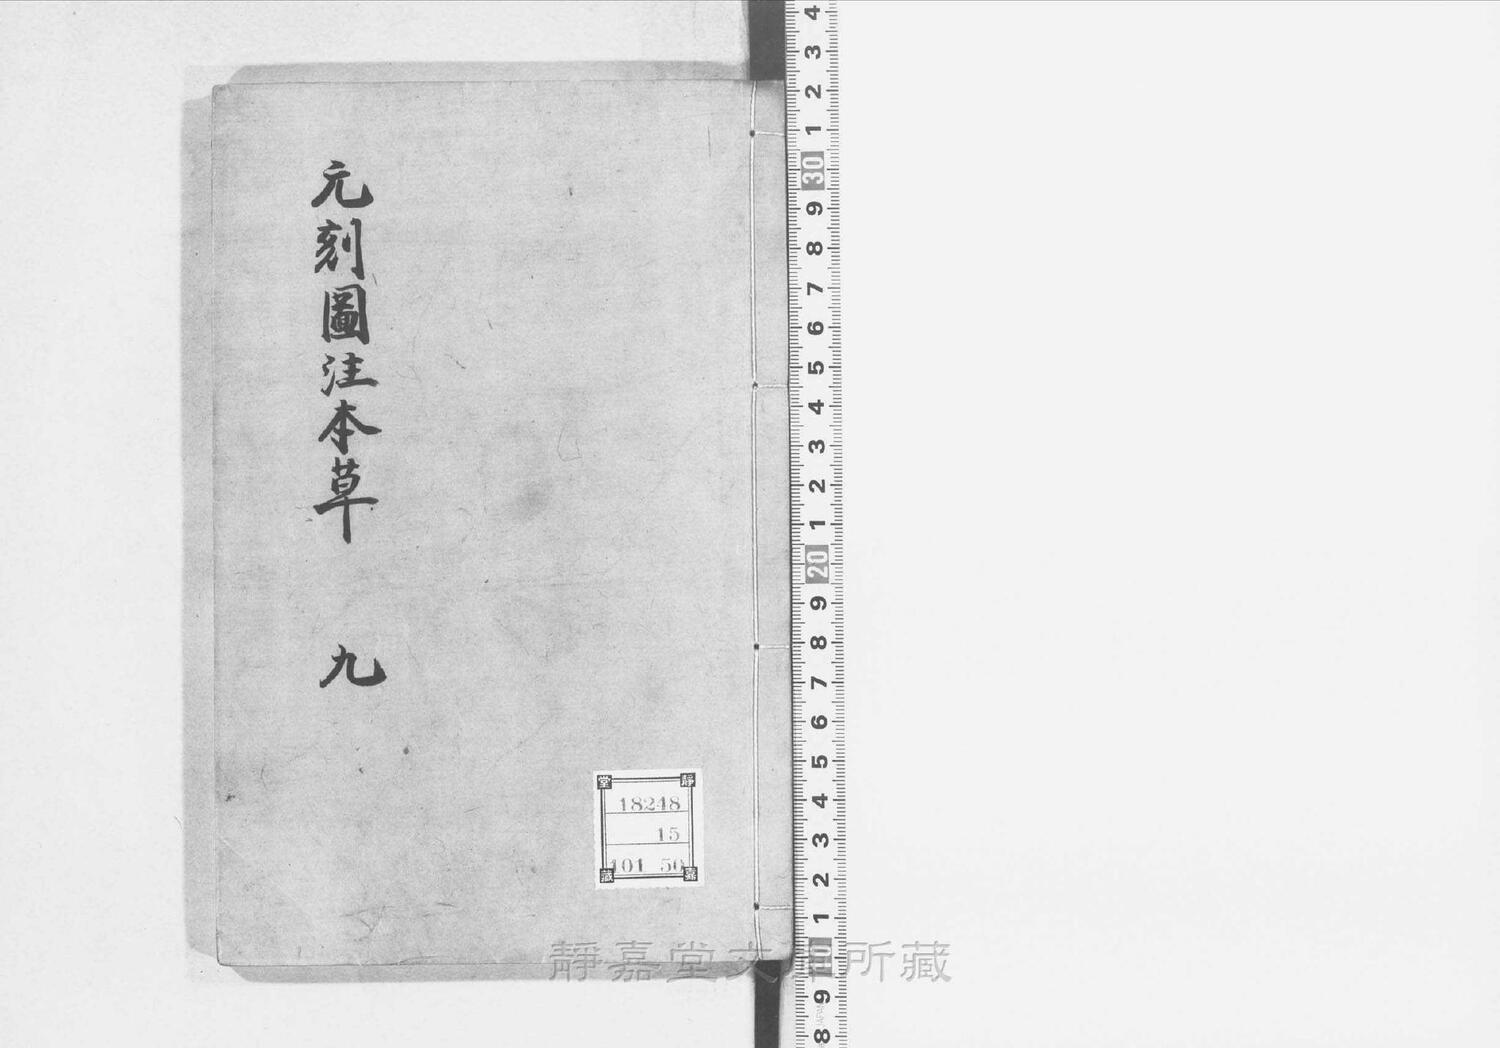 元刻圖注本草
九
靜嘉堂藏
18248
15
101 50
靜嘉堂文庫所藏
4
3
2
1
30
9
8
7
6
5
4
3
2
1
20
9
8
7
6
5
4
3
2
1
10
9
8